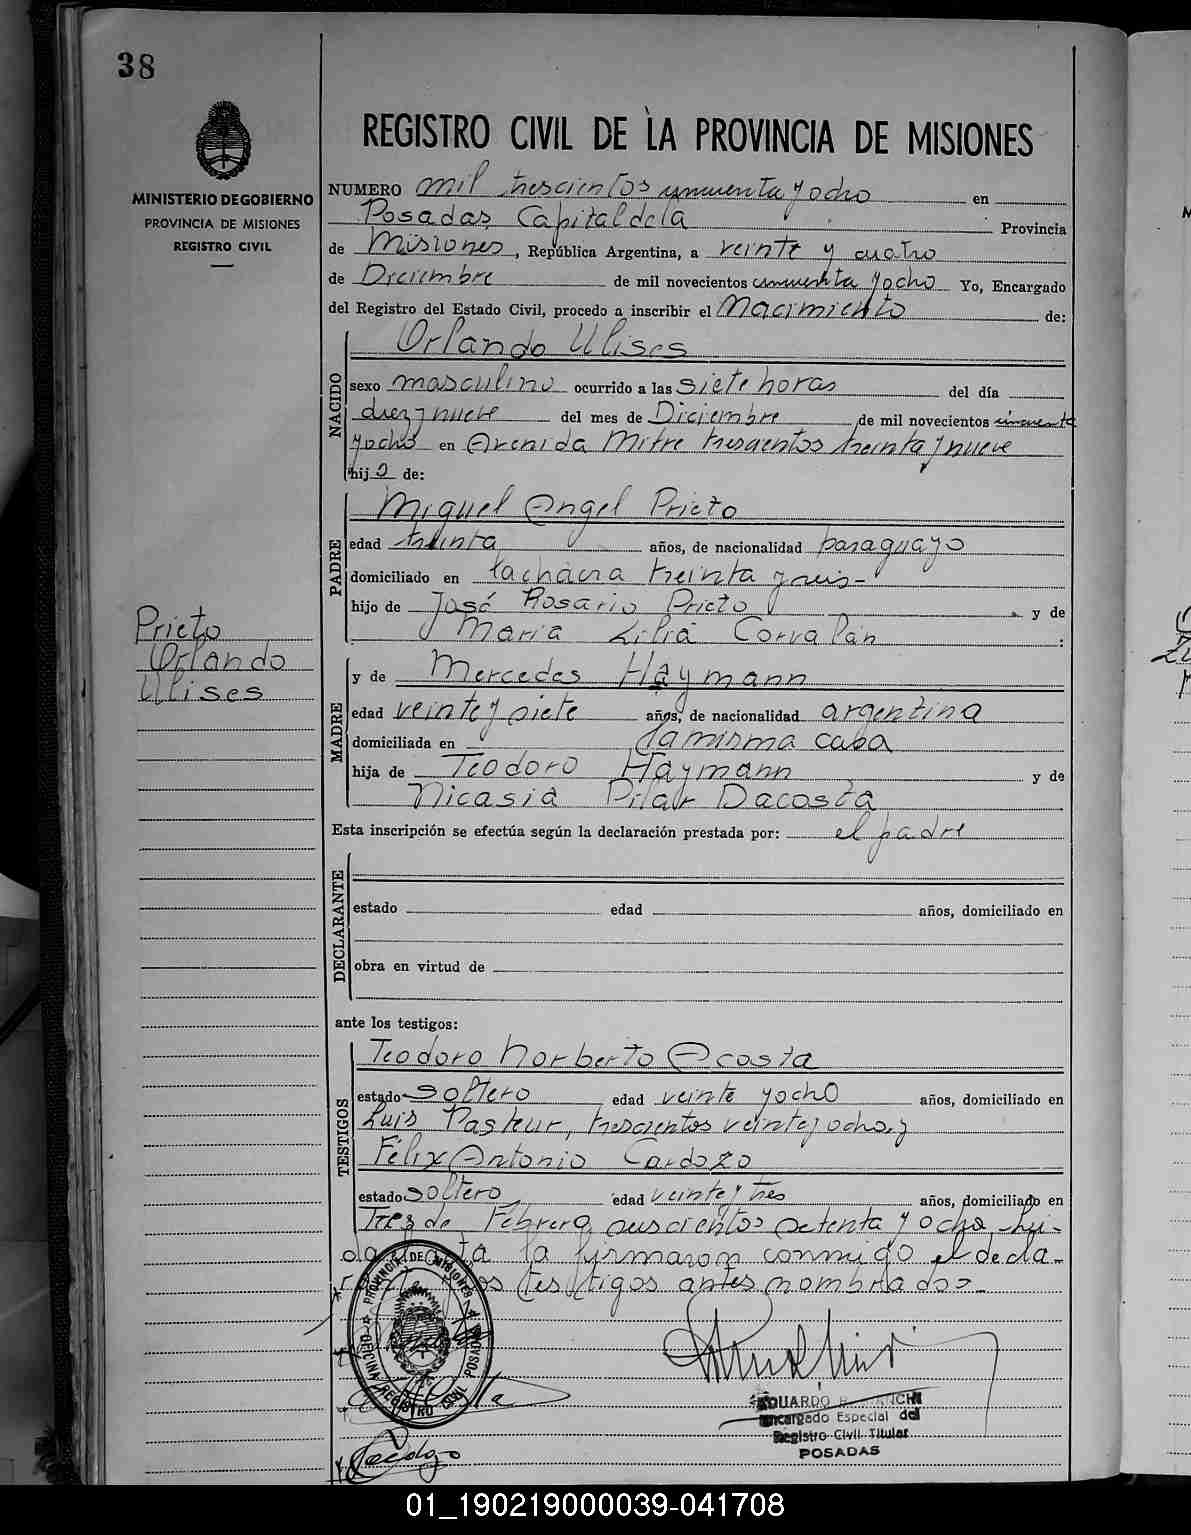 38
MINISTERIO DE GOBIERNO
PROVINCIA DE MISIONES
REGISTRO CIVIL
Prieto
Orlando
Ulises
REGISTRO CIVIL DE LA PROVINCIA DE MISIONES
NUMERO mil trescientos cincuenta y ocho en
Posadas, Capital de la Provincia
de Misiones, República Argentina, a veinte y cuatro
de Diciembre de mil novecientos cincuenta y ocho Yo, Encargado
del Registro del Estado Civil, procedo a inscribir el Nacimiento de:
NACIDO
Orlando Ulises
sexo masculino ocurrido a las siete horas del día
diez y nueve del mes de Diciembre de mil novecientos cincuenta
y ocho en Avenida Mitre trescientos treinta y nueve
hijo de:
PADRE
Miguel Angel Prieto
edad treinta años, de nacionalidad paraguayo
domiciliado en la chacra treinta y seis-
hijo de José Rosario Prieto y de
María Lilia Corvalán :
MADRE
y de Mercedes Haymann
edad veinte y siete años, de nacionalidad argentina
domiciliada en la misma casa
hija de Teodoro Haymann y de
Nicasia Pilar Dacosta
Esta inscripción se efectúa según la declaración prestada por: el padre
DECLARANTE
estado edad años, domiciliado en
obra en virtud de
ante los testigos:
TESTIGOS
Teodoro Norberto Acosta
estado soltero edad veinte y ocho años, domiciliado en
Luis Pasteur, trescientos veinte y ocho, y
Félix Antonio Cardozo
estado soltero edad veinte y tres años, domiciliado en
Tres de Febrero, seiscientos setenta y ocho - Leí-
da la firmaron conmigo el decla-
los testigos antes nombrados-
OFICINA REGISTRO CIVIL POSADAS
PROVINCIA DE MISIONES
EDUARDO
Encargado Especial del
Registro Civil Titular
POSADAS
Cardozo
01_190219000039-041708